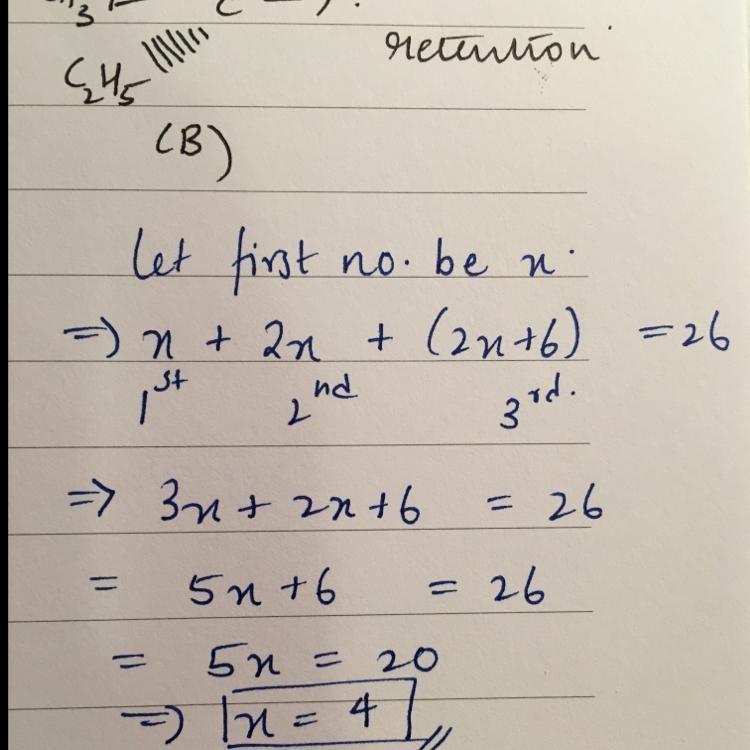 retention
C2H5
(B)
Let first no. be x.
=) x + 2x + (2x+6) = 26
1st 2nd 3rd.
=> 3x + 2x + 6 = 26
= 5x + 6 = 26
= 5x = 20
=) x = 4